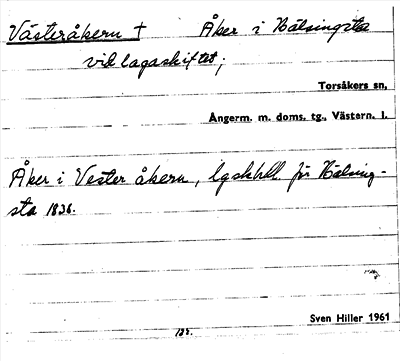 Västeråkern † Åker i Hälsingsta
vid lagaskiftet;
Torsåkers sn,
Ångerm. m. doms. tg., Västern. l.
Åker i Vester åkern, lgskhll. för Hälsing-
sta 1836.
Sven Hiller 1961